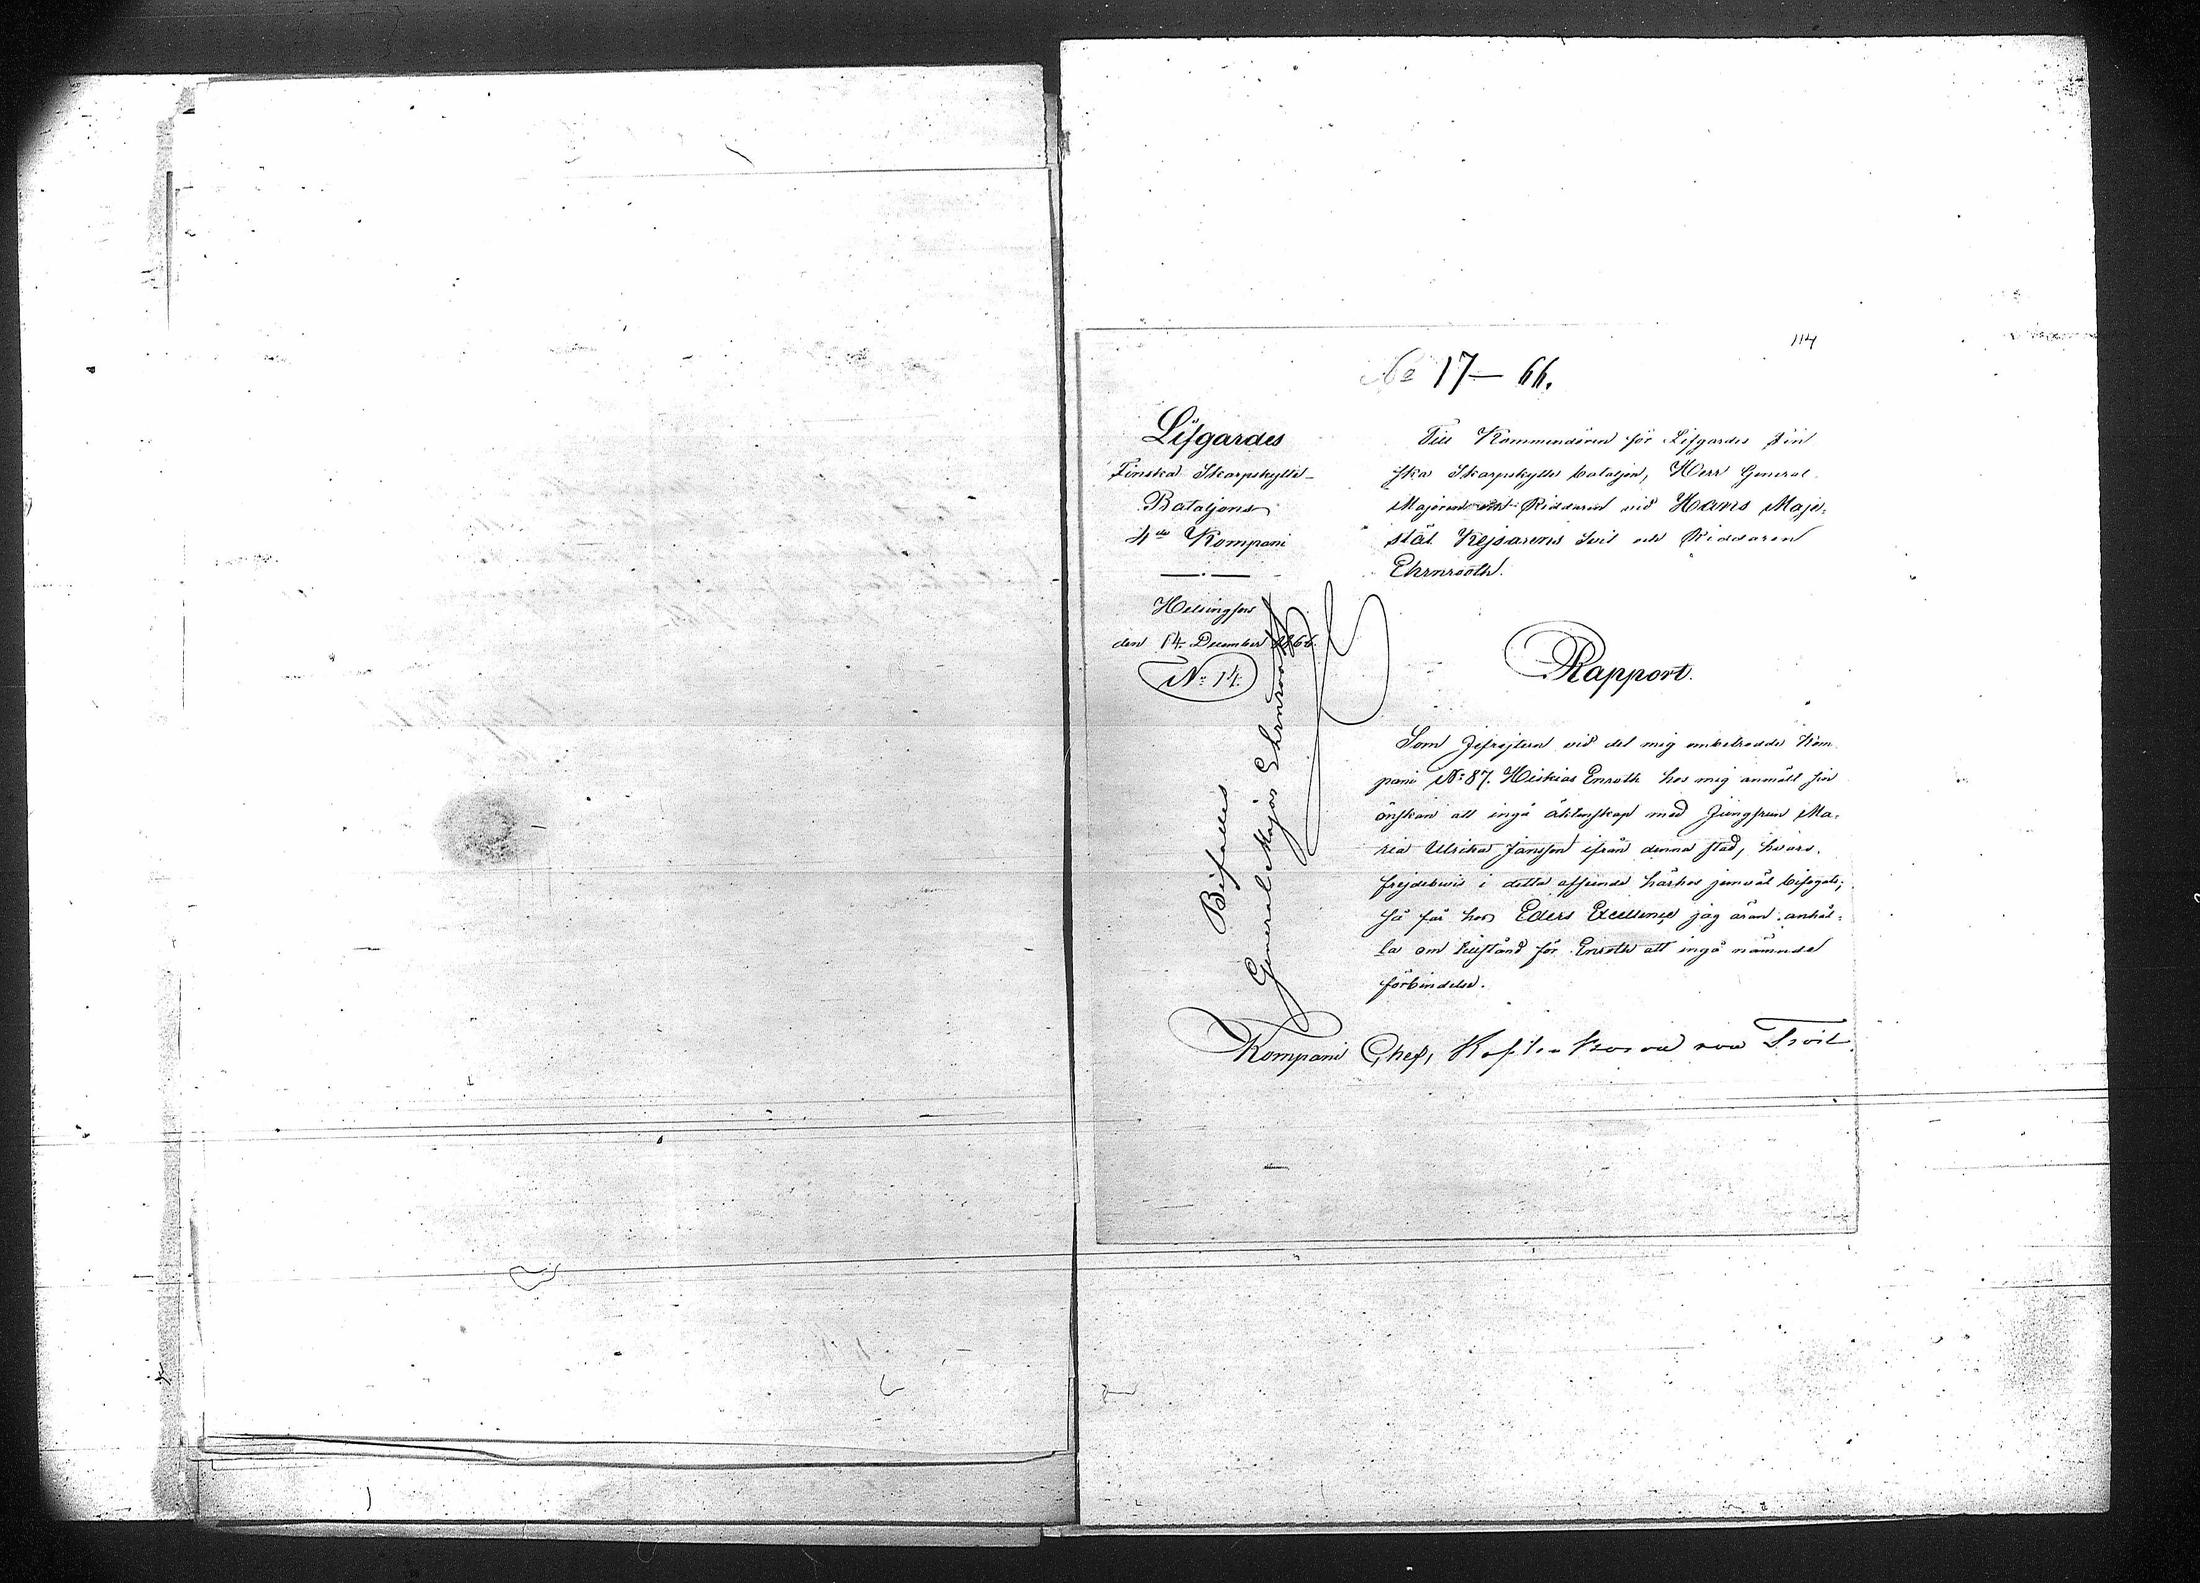 114
No 17–66.
Lifgardes
Finska Skarpskytte-
Bataljons
4de Kompani
Helsingfors
den 14 December 1866.
No 14.
Till Kommendören för Lifgardes Fin
ska Skarpskytte bataljon, Herr General
Majoren och Riddaren vid Hans Maje-
stät Kejsarens Svit och Riddaren
Ehrnrooth.
Rapport.
Som Gefrejtern vid det mig anbetrodda Kom
pani No 87. Hiskias Enroth hos mig anmält sin
önskan att ingå äktenskap med Jungfrun Ma-
ria Ulrika Jansson ifrån denna stad, hvars
frejdebevis i detta afseende härhos jemväl bifogas;
Så får hos Eders Excellence jag äran anhål-
la om tillstånd för Enroth att ingå nämnde
förbindelse.
Kompani Chef, von Troil.
Bifalles
General Major Ehrnrooth